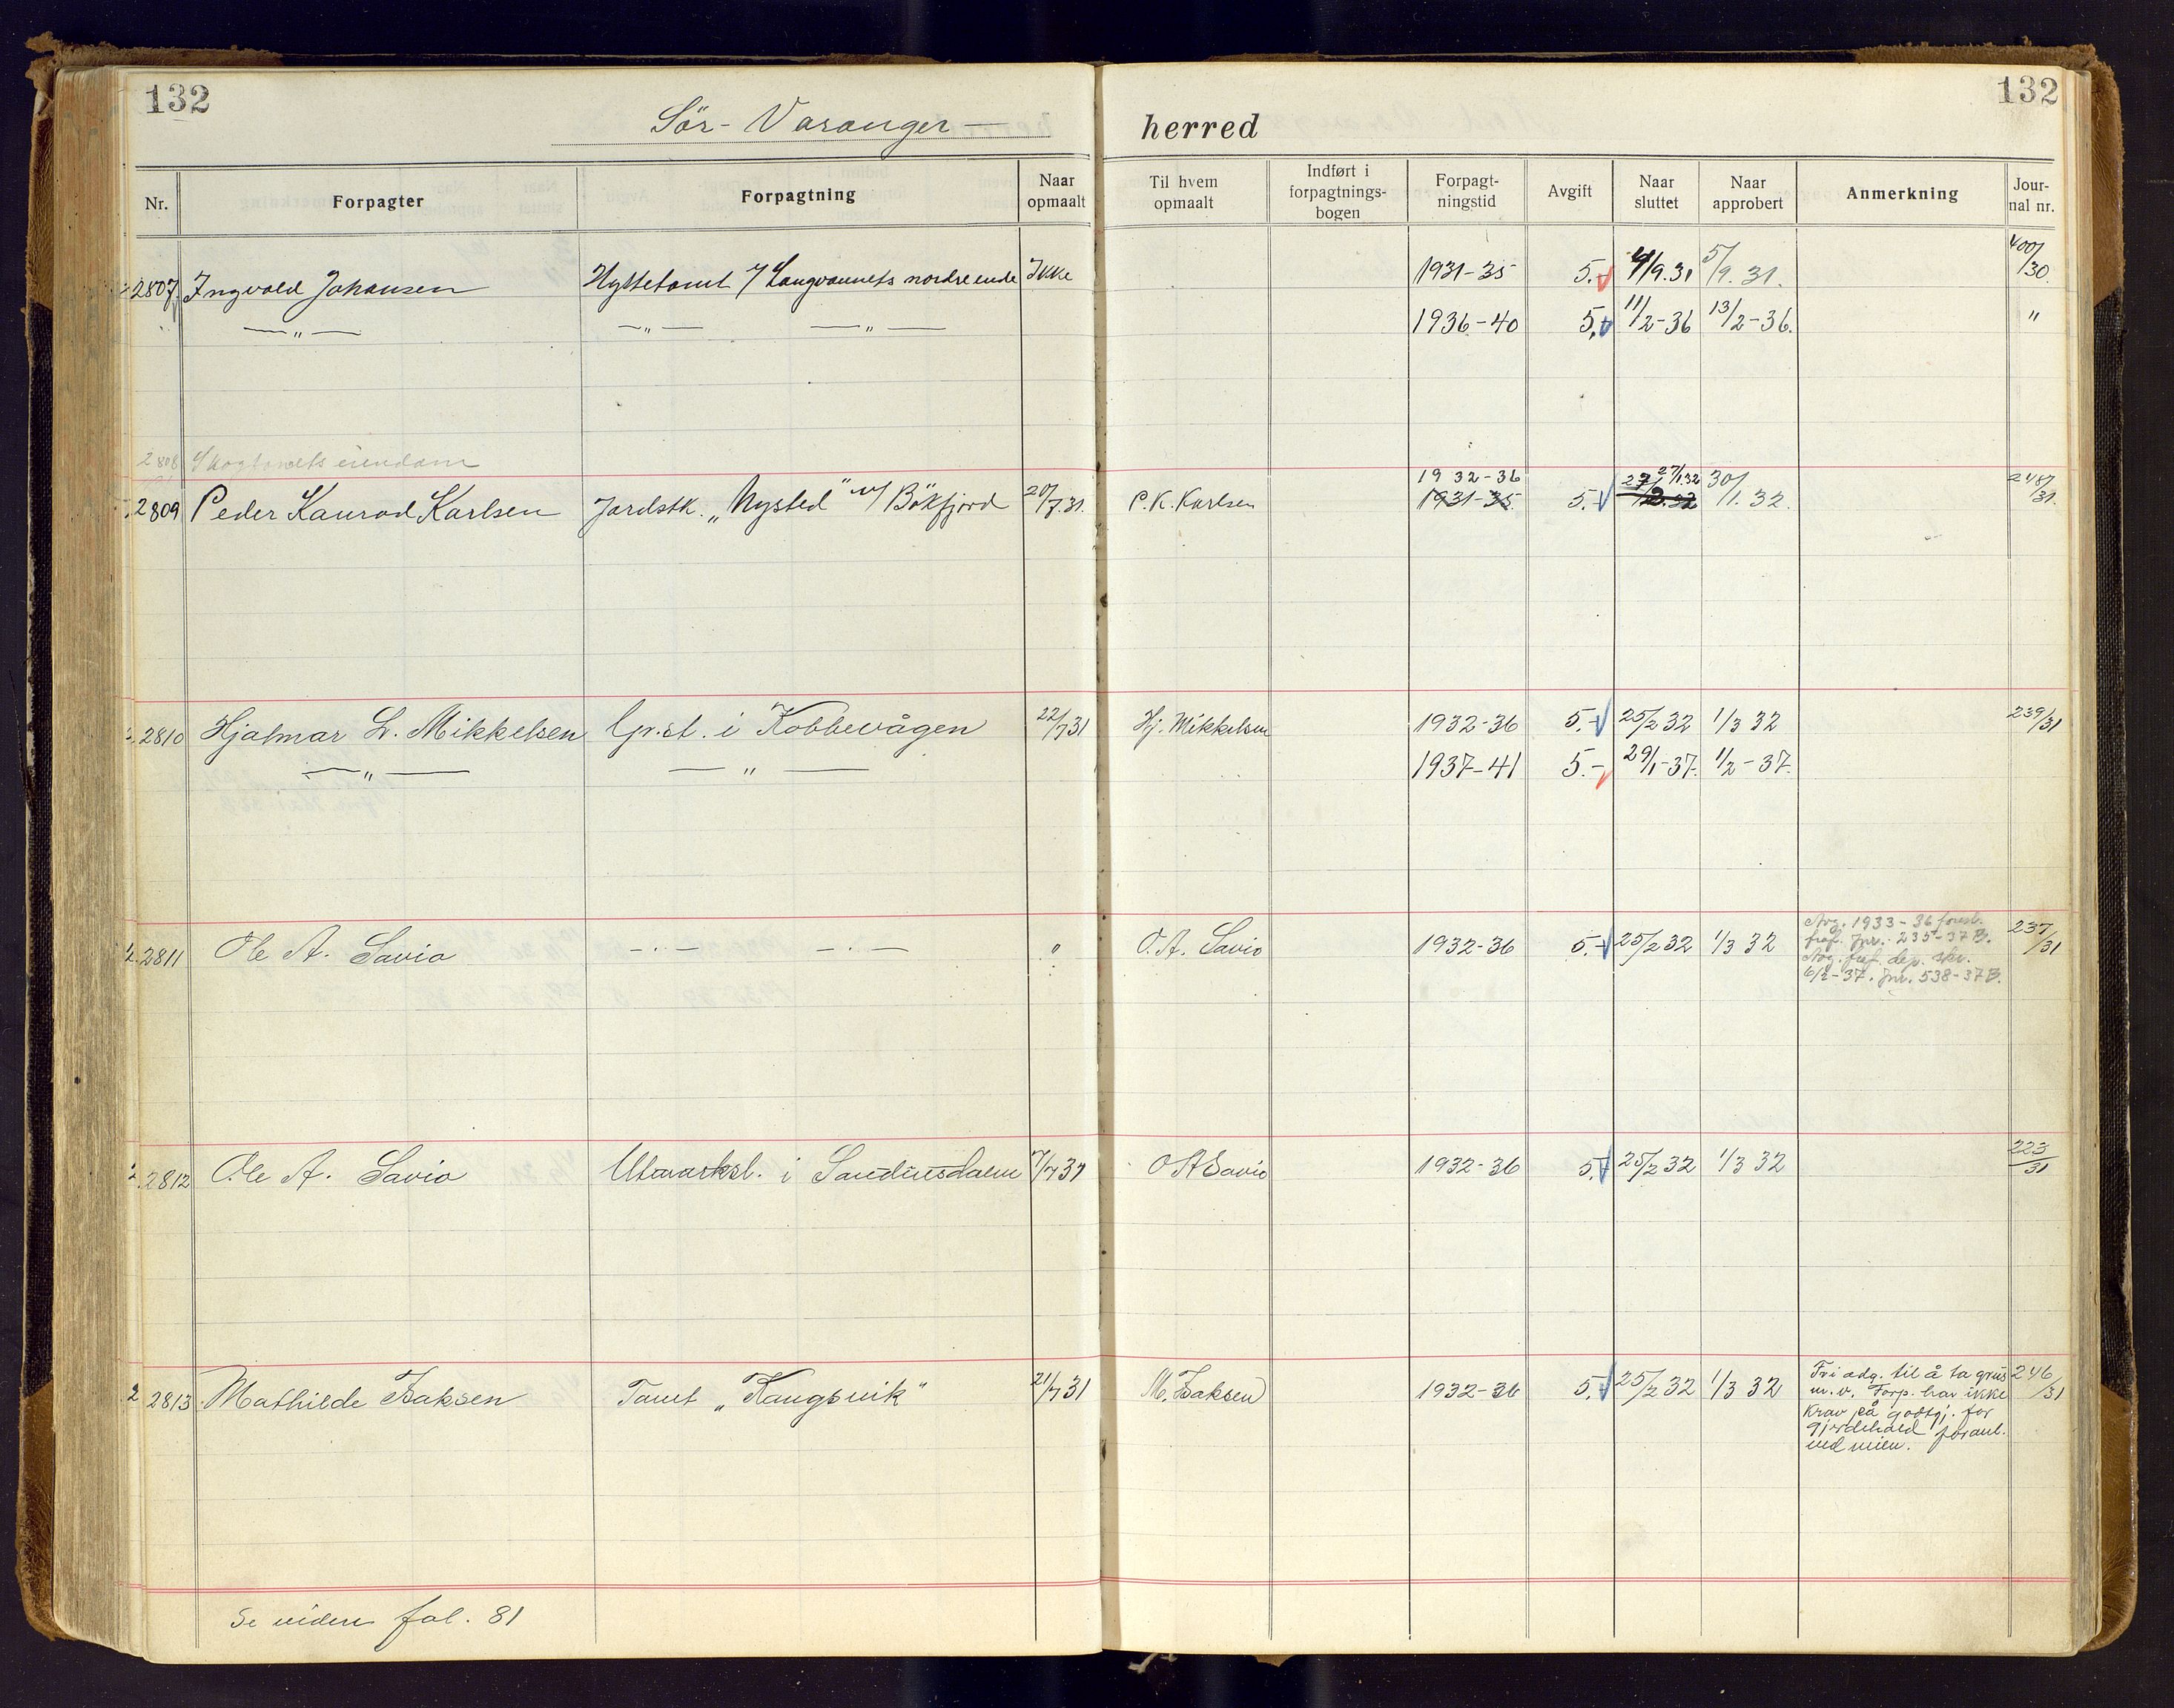 132
132
Sör-Varanger —
herred
Nr. Forpagter Forpagtning Naar opmaalt Til hvem opmaalt Indført i forpagtnings-bogen Forpagt-ningstid Avgift Naar sluttet Naar approbert Anmerkning Jour-nal nr.
2807 Ingvald Johansen Hyttetomt v/ Langvannets nordre ende Ikke 1931-35 5.- 4/9.31 5/9.31. 400/30
" —"— —"— —"— 1936-40 5,- 11/2-36 13/2-36. "
2808 Skogfondets eiendom
1932-36 27/1.32
2809 Peder Kanrad Karlsen Jordstk. „Nysted" v/ Bökfjord 20/7.31. P.K. Karlsen 1931-35 5.- 30/1.32. 248/31.
2810 Hjalmar L. Mikkelsen Gr.st. i Kobbevågen 22/7 31 Hj. Mikkelsen 1932-36 5.- 25/2 32 1/3 32 239/31
—"— —"— 1937-41 5.- 29/1-37. 1/2-37.
2811 Ole A. Savio —"— —"— " O.A. Savio 1932-36 5.- 25/2 32 1/3 32 237/31
Avg. 1933-36
fraf. Jnr. 235-37 B.
Avg. fraf. dep. skr.
6/2-37. Jnr. 538-37 B.
2812 Ole A. Savio Utmarkst. i Sandnesdalen 7/7 31 O A Savio 1932-36 5.- 25/2 32 1/3 32 223/31
2813 Mathilde Isaksen Tomt „Kangsvik" 21/7 31 M. Isaksen 1932-36 5.- 25/2 32 1/3 32 246/31
Fri adg. til å ta grus
m.v. Forp. har ikke
krav på godtgj. for
gjerdehold